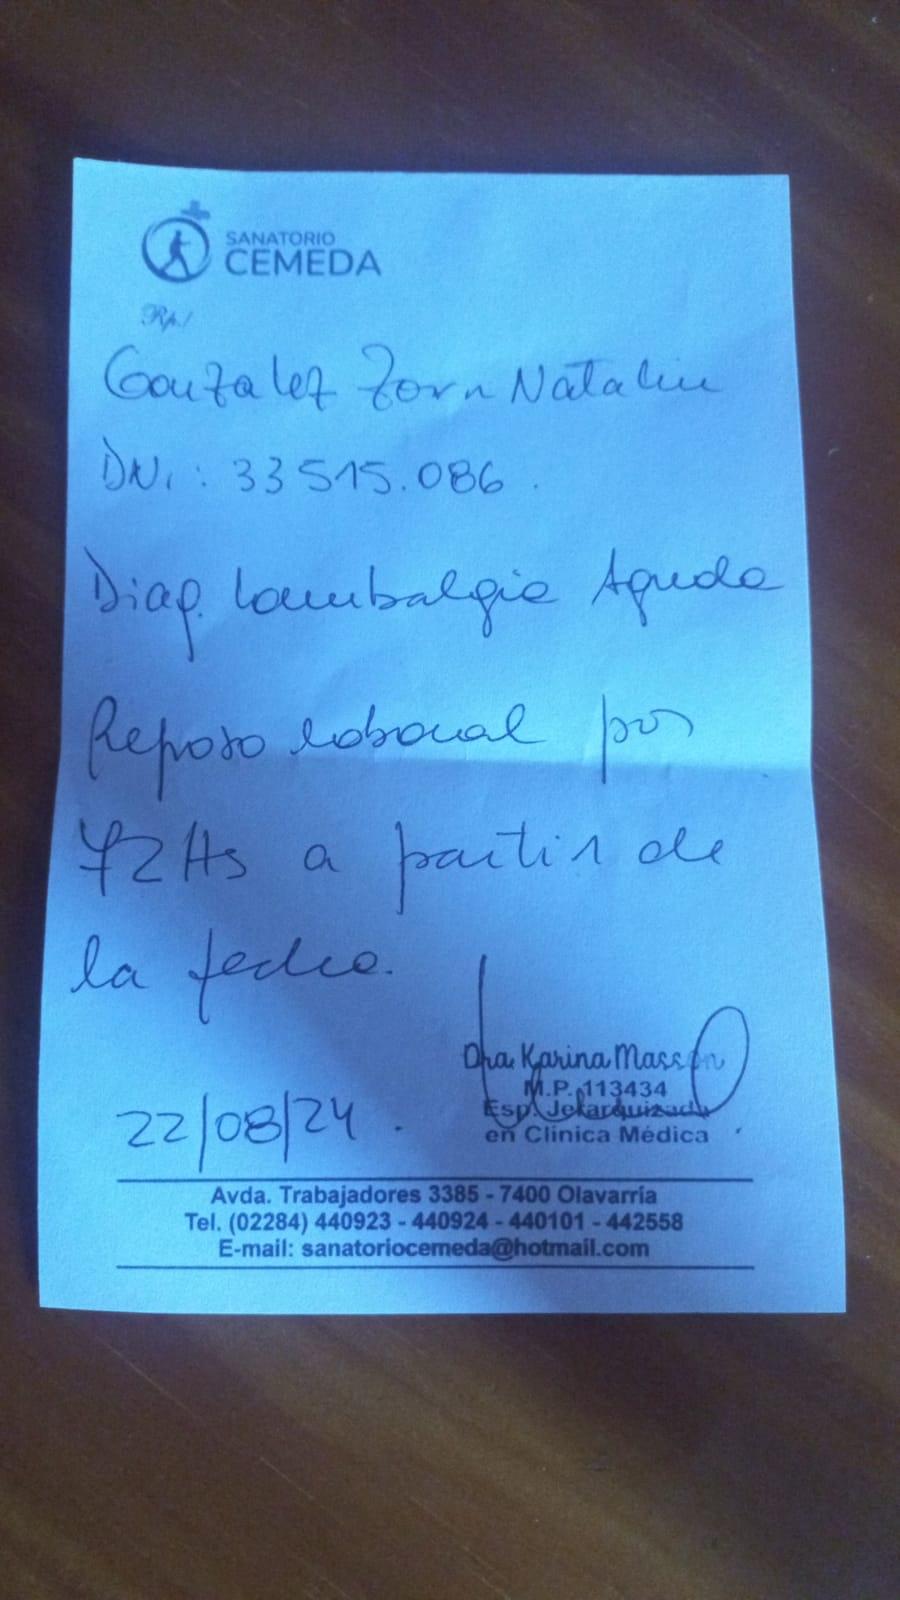 SANATORIO
CEMEDA
Rp./
Gonzalez Zorn Natalia
DNI: 33515.086.
Diag. Lumbalgia Aguda
Reposo laboral por
72Hs a partir de
la fecha.
Dra. Karina Masson
M.P. 113434
Esp. Jerarquizada
en Clínica Médica
22/08/24.
Avda. Trabajadores 3385 - 7400 Olavarría
Tel. (02284) 440923 - 440924 - 440101 - 442558
E-mail: sanatoriocemeda@hotmail.com